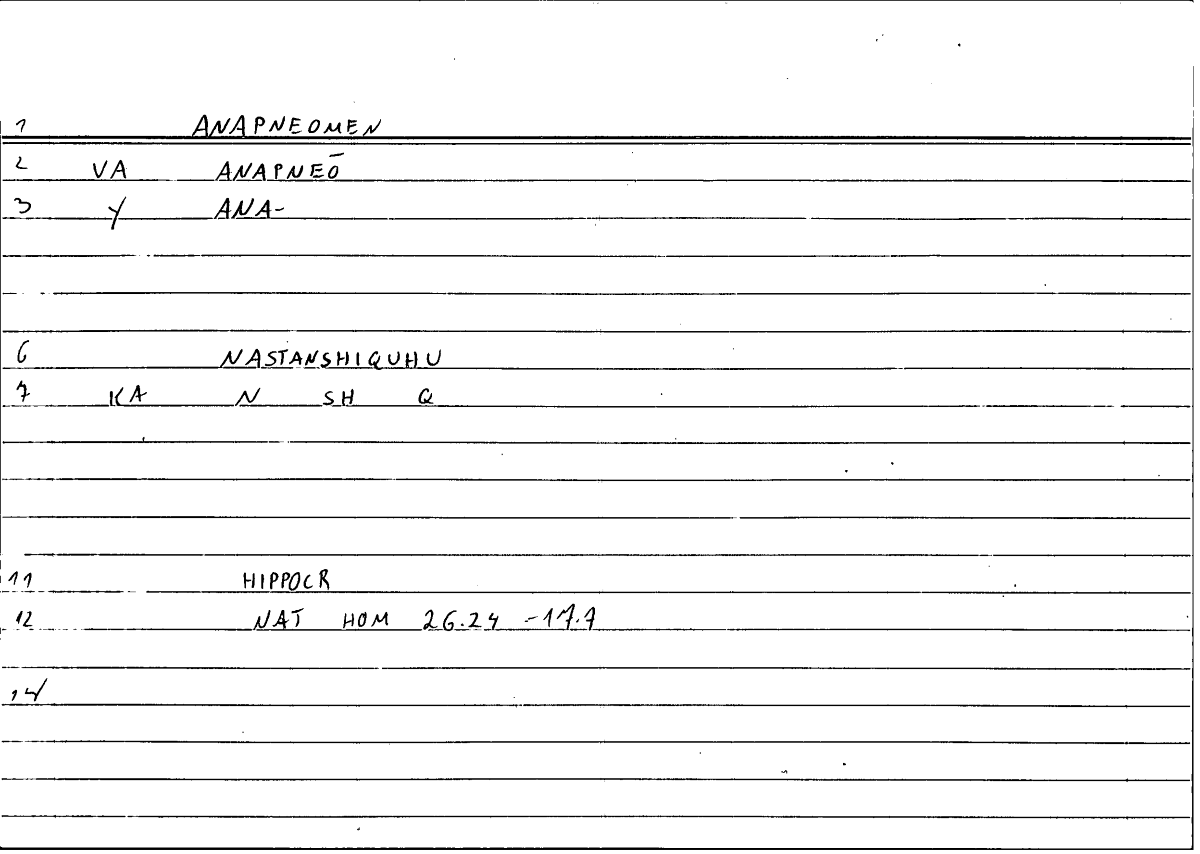 1 ANAPNEOMEN
2 VA ANAPNEŌ
3 Y ANA-
6 NASTANSHIQUHU
7 KA N SH Q
11 HIPPOCR
12 NAT HOM 26.24 -17.7
14